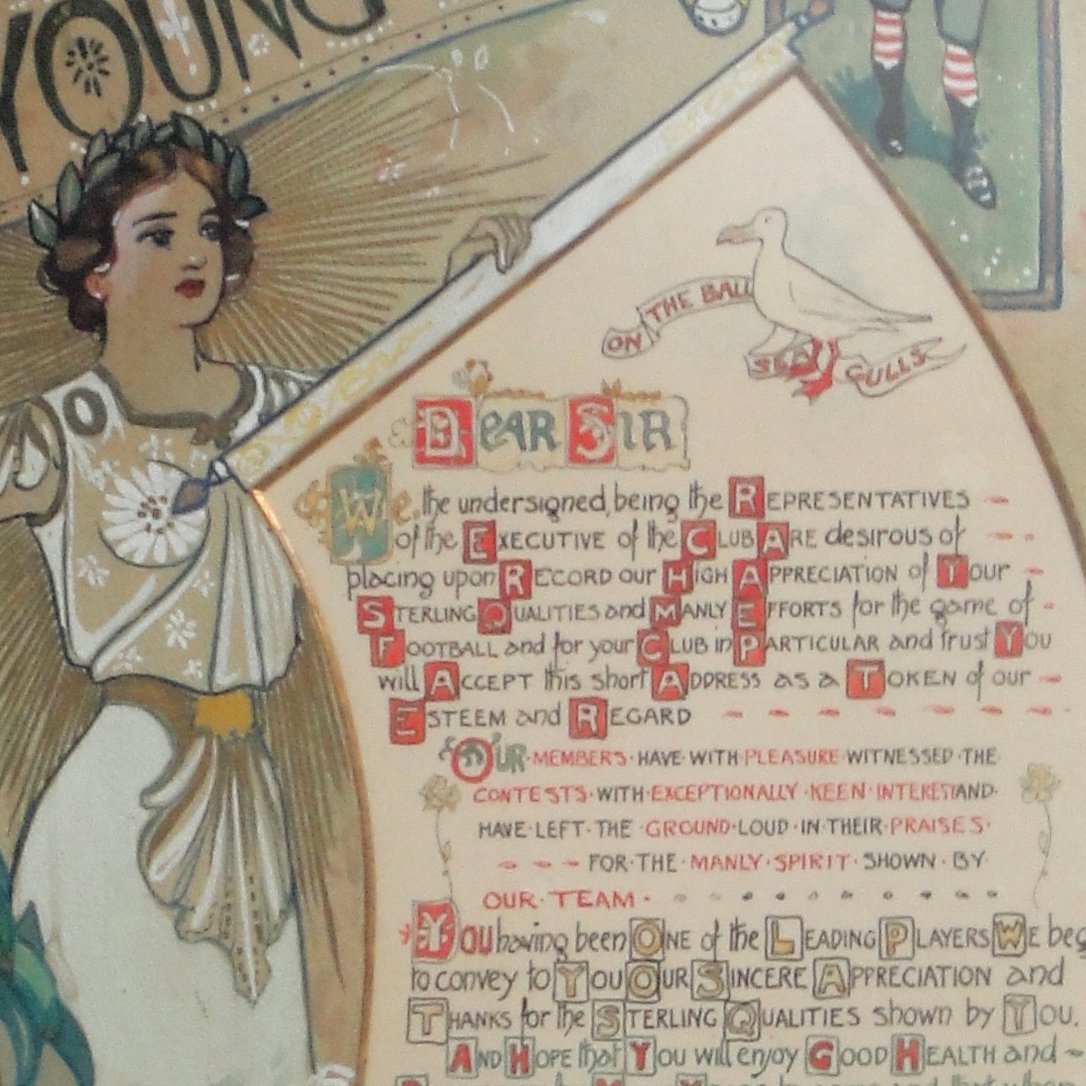 YOUNG
ON THE BALL
SEA GULLS
DEAR SIR
We, the undersigned, being the REPRESENTATIVES
of the EXECUTIVE of the CLUB ARE desirous of
placing upon RECORD our HIGH APPRECIATION of YOUR
STERLING QUALITIES and MANLY EFFORTS for the game of
FOOTBALL and for your CLUB in PARTICULAR and trust YOU
will ACCEPT this short ADDRESS as a TOKEN of our
ESTEEM and REGARD
OUR · MEMBERS · HAVE · WITH · PLEASURE · WITNESSED · THE
CONTESTS · WITH · EXCEPTIONALLY · KEEN · INTEREST AND ·
HAVE · LEFT · THE · GROUND · LOUD · IN · THEIR · PRAISES ·
FOR · THE · MANLY · SPIRIT · SHOWN · BY
OUR · TEAM ·
YOU having been ONE of the LEADING PLAYERS WE beg
to convey to YOU OUR SINCERE APPRECIATION and
THANKS for the STERLING QUALITIES shown by YOU.
AND HOPE that YOU will enjoy GOOD HEALTH and